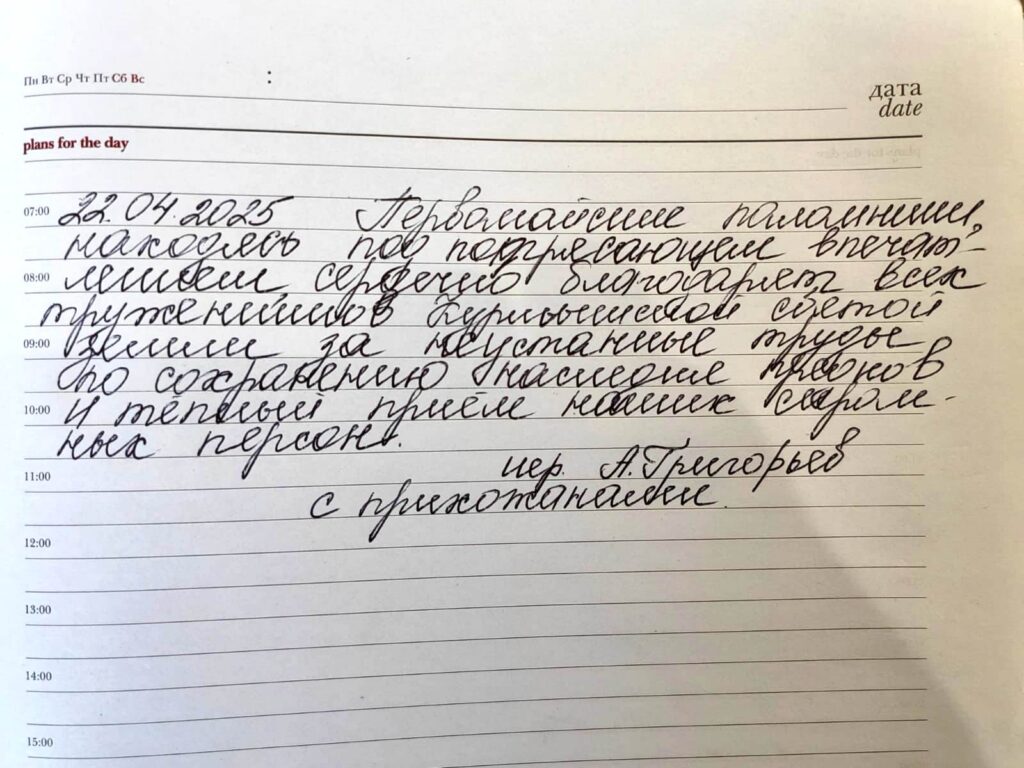 Пн Вт Ср Чт Пт Сб Вс :
дата
date
plans for the day
07:00 22.04.2025 Первомайские паломники,
находясь под потрясающем впечат-
08:00 лением, сердечно благодарят всех
тружеников Курмышской святой
09:00 земли за неустанные труды
по сохранению наследия предков
10:00 и тёплый приём наших скром-
ных персон.
иер. А. Григорьев
11:00
с прихожанами.
12:00
13:00
14:00
15:00